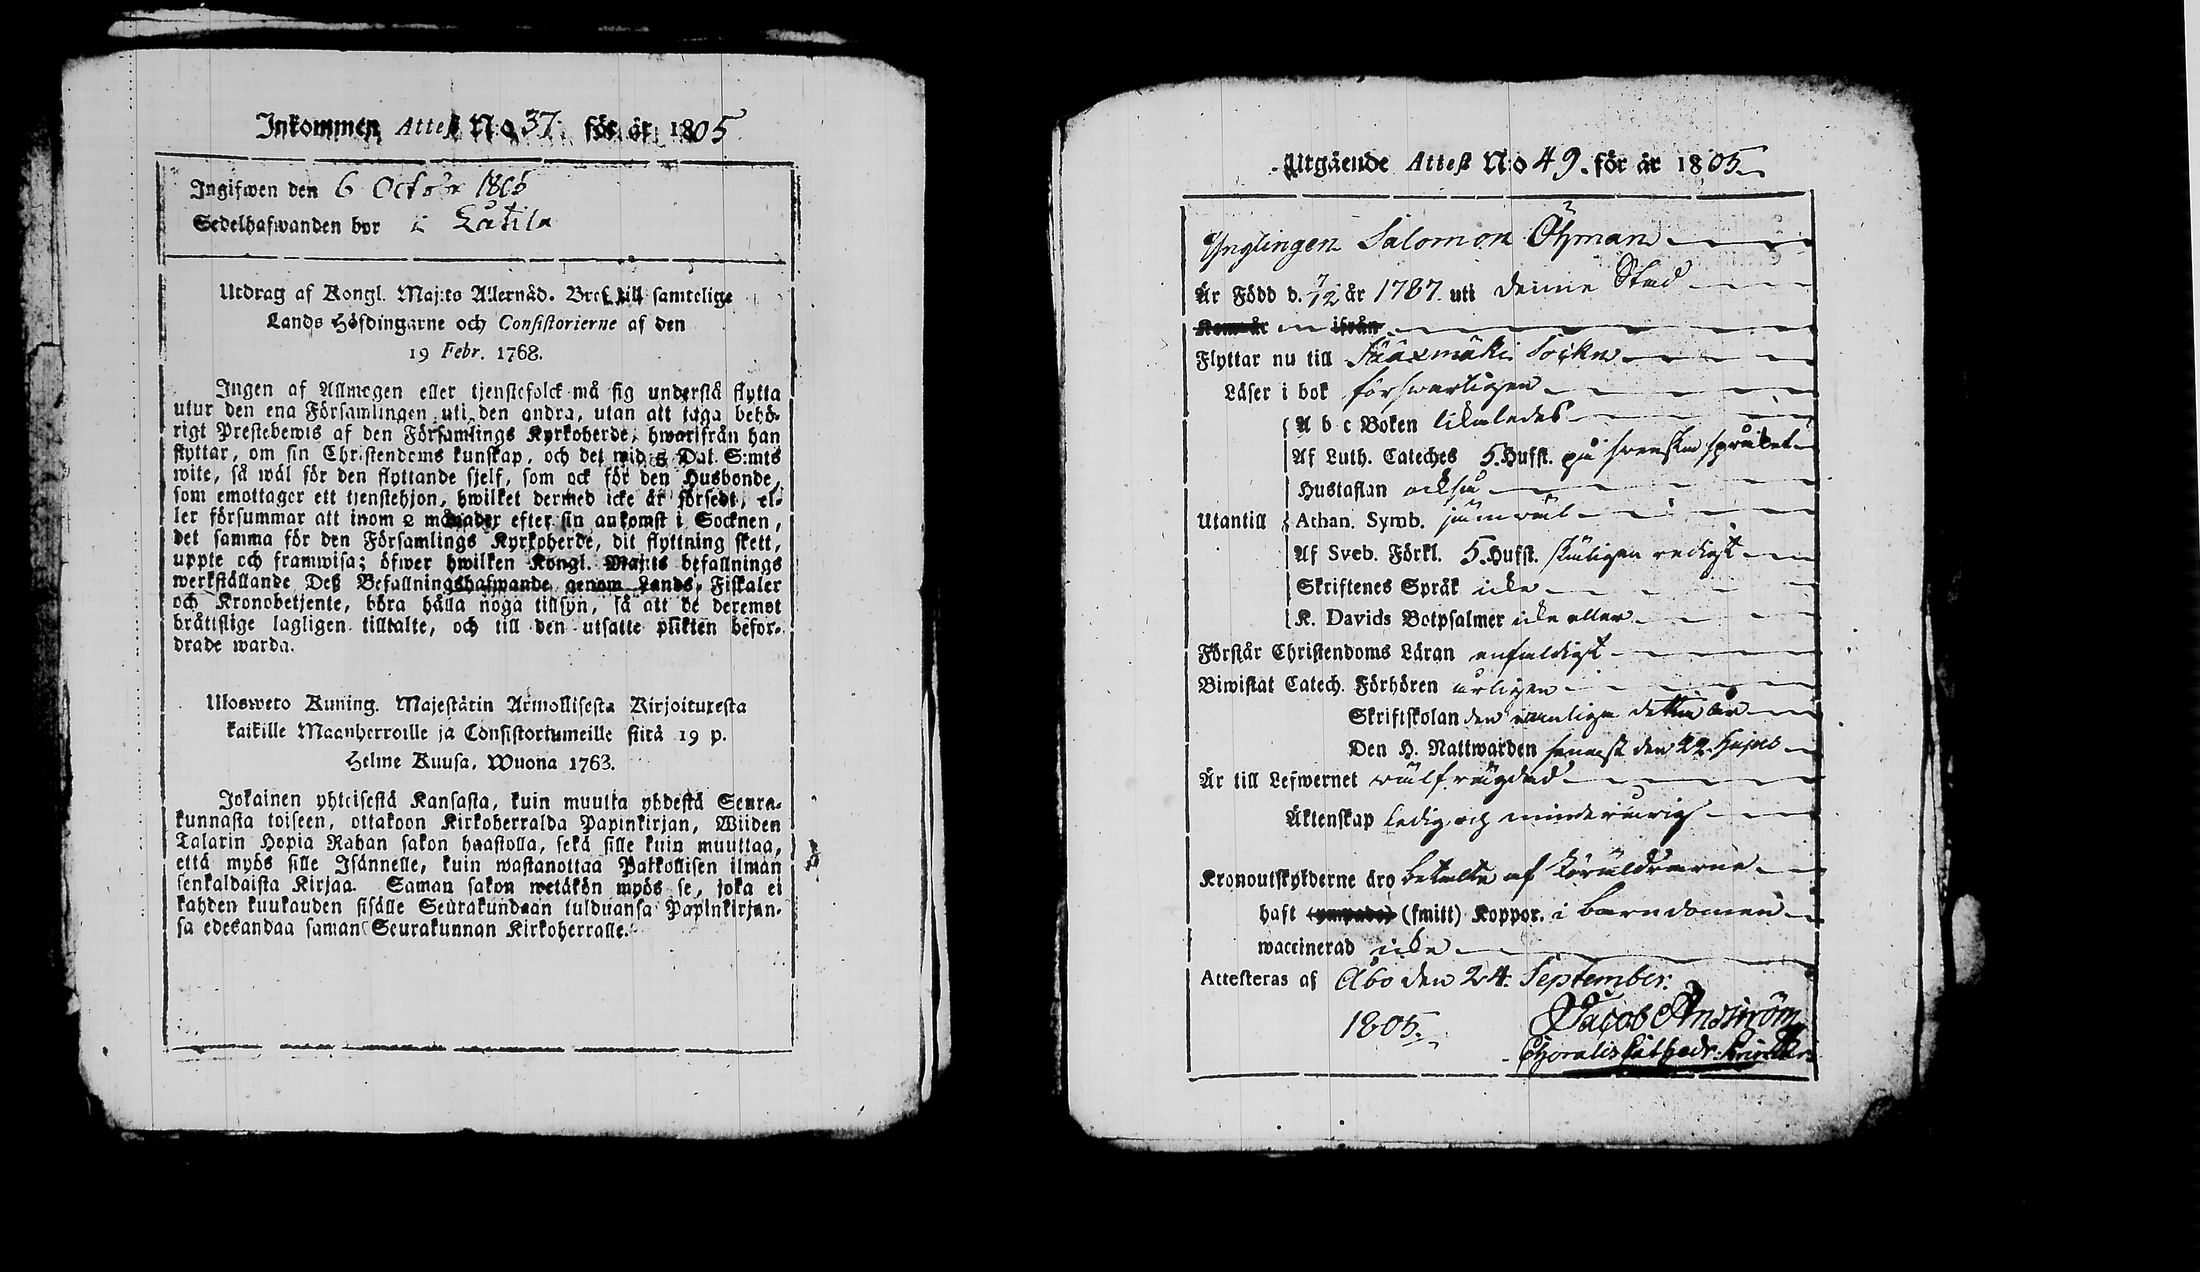 Inkommen Attest No 37. för år 1805
Ingifwen den 6 Octobr 1805
Sedelhafwanden bor i Låtila
Utdrag af Kongl. Maj:ts Allernåd. Bref till samtelige
Lands Höfdingarne och Consistorierne af den
19 Febr. 1768.
Ingen af Allmogen eller tjenstefolck må sig understå flytta
utur den ena Församlingen uti den andra, utan att taga behö-
rigt Prestebewis af den Församlings Kyrkoherde, hwarifrån han
flyttar, om sin Christendoms kunskap, och det wid 5 Dal. S:mts
wite, så wäl för den flyttande sjelf, som ock för den Husbonde,
som emottager ett tjenstehjon, hwilket dermed icke är försedt, el-
ler försummar att inom 2 månader efter sin ankomst i Socknen,
det samma för den Församlings Kyrkoherde, dit flyttning skett,
uppte och framwisa; öfwer hwilken Kongl. Maj:ts befallnings
werkställande Deß Befallningshafwande genom Lands-Fiskaler
och Kronobetjente, böra hålla noga tillsyn, så att de deremot
bråttslige lagligen tilltalte, och till den utsatte plikten befor-
drade warda.
Ulosweto Kuning. Majestätin Armollisesta Kirjoituxesta
kaikille Maanherroille ja Consistoriumeille siitä 19 p.
Helme Kuusa, Wuona 1763.
Jokainen yhteisestä Kansasta, kuin muutta yhdestä Seura-
kunnasta toiseen, ottakoon Kirkoherralda Papinkirjan, Wiiden
Talarin Hopia Rahan sakon haastolla, sekä sille kuin muuttaa,
että myös sille Isännelle, kuin wastanottaa Palkollisen ilman
senkaldaista Kirjaa. Saman sakon wetäkön myös se, joka ei
kahden kuukauden sisälle Seurakundaan tulduansa Papinkirjan-
sa edesandaa saman Seurakunnan Kirkoherralle.
Utgående Attest No 49. för år 1805.
Ynglingen Salomon Öhman
Är Född d. 7/12 år 1787. uti denne Stad
Kom år ifrån
Flyttar nu till Sääxmäki Sockn
Läser i bok förswarligen
A b c Boken likaledes
Af Luth. Cateches 5. Hufst. på swenska språket
Hustaflan också
Utantill Athan. Symb. jämwäl
Af Sveb. Förkl. 5. Hufst. skäligen redigt
Skriftenes Språk icke
K. Davids Botpsalmer icke eller
Förstår Christendoms Läran enfaldigt
Biwistat Catech. Förhören årligen
Skriftskolan den wanliga detta år
Den H. Nattwarden senast den 22 hujus
Är till Lefwernet wälfrägdad
Äktenskap ledig och minderårig
Kronoutskylderne äro betalte af föräldrarne
haft (ympade) (smitt) Koppor. i barndomen
waccinerad icke
Attesteras af Åbo den 24. September.
1805.
Jacob Anström